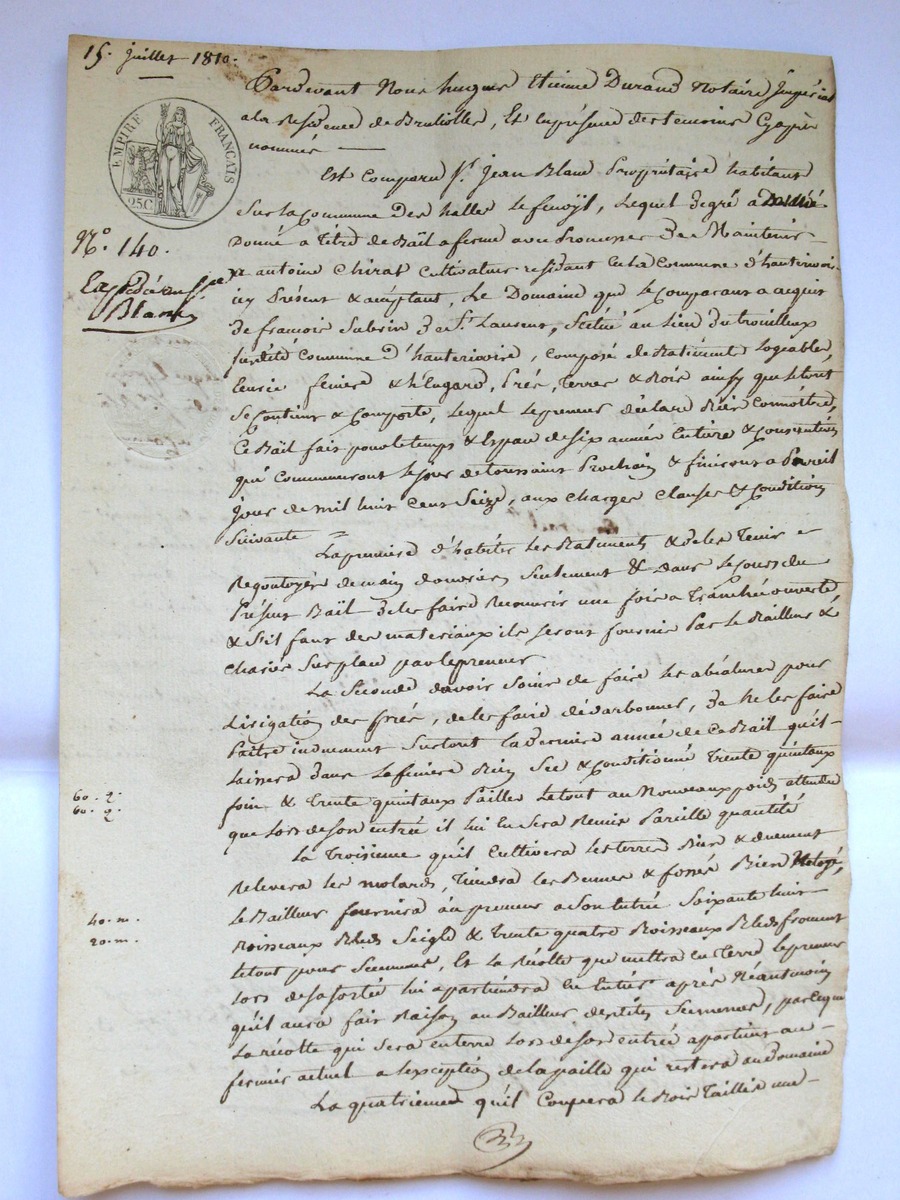 15. juillet 1810.
EMPIRE FRANÇAIS
25C
N.o 140.
Expédié en
Blanc
Pardevant Nous hugues Etienne Durand Notaire Impérial
a la Residence de Brullolles, Et en présence des temoins Cyaprès
nommés
Est Comparu S.r Jean Blanc Propriétaire habitant
Sur la Commune des halles le fenoÿl, Lequel de gré a
Donné a Titre de Baïl a ferme avec Promesse de Maintenir
a antoine Chirat Cultivateur residant en la Commune d'hauterivoire
icy Présent & acceptant, Le Domaine que le Comparant a acquis
de francois Subrin de S.t Laurent, Scitué au lieu du trouilleux
susdité Commune d'hauterivoire, Composé de Batiment logeables,
Ecurie feniere & hEngard, Prés, Terres & Bois ainsy que le tout
se Contient & Comporte, Lequel le preneur déclare Bien Connoitre,
Ce Baïl fait pour le temps & Espace de six année Entiere & Consecutives
qui Commenceront le jour de toussaint Prochain & finiront a Pareil
jour de mil huit Cent Seize, aux Charges Clauses & Condition
Suivante =
La premiere d'habiter les Batiments & de les Tenir
Regoutoyés de main d'ouvrier Seulement & Dans le Cours du
Présent Baïl de les faire Recouvrir une fois a Tranché ouverte
& S'il faut des materiaux ils seront fournis Par le Bailleur &
Chariés Sur place par le preneur
La Seconde d'avoir Soin de faire les abéalures pour
L'irigation des Prés, de les faire dévarbonner, de ne les faire
Paitre indument Surtout la derniere année de Ce Baïl qu'il
Laissera dans La feniere Bien Sec & Conditionné Trente quintaux
foin & trente quintaux Pailles Le tout au Nouveaux poids attendu
que Lors de Son entrée il lui En Sera Remis Pareille quantité
60. q.
60. q.
La Troisieme qu'il Cultivera les terres Bien & duement
Relevera les molards, Tiendra les Bennes & fossés Bien Netoyé,
Le Bailleur fournira au preneur a Son Entrée Soixante huit
Boisseaux Bleds Seigle & Trente quatre Boisseaux Bleds froment
40. m.
20. m.
le tout pour Semences, Et la Récolte que mettra en Terre le preneur
Lors de sa sortie lui apartiendra En Entier après Néantmoins
qu'il aura fait Raison au Bailleur desdites Semences, parceque
La récolte qui Sera en terre Lors de Son entrée apartient au
fermier actuel a lexception de la paille qui restera au Domaine
La quatrieme qu'il Coupera le Bois Taillis une